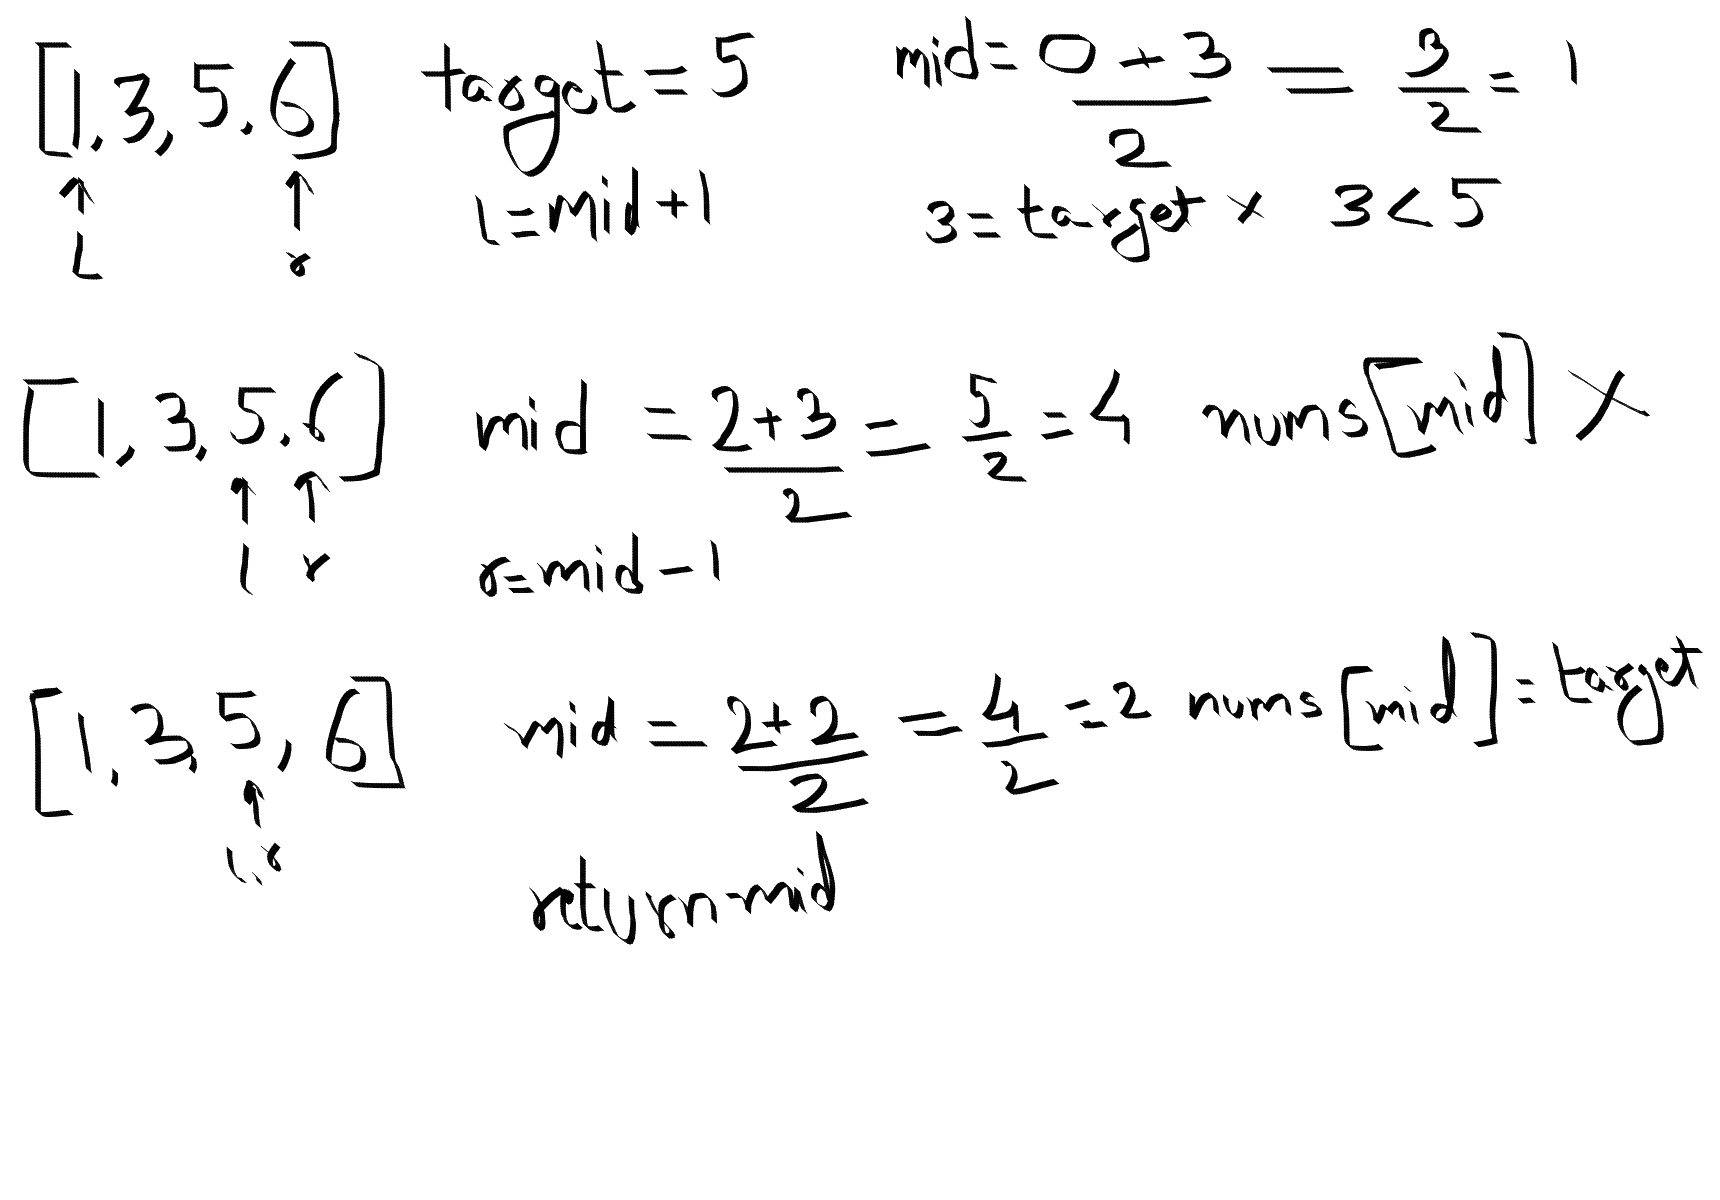 [1,3,5,6] target = 5 mid = 0+3/2 = 3/2 = 1
↑ ↑ l=mid+1 3=target × 3<5
L r
[1,3,5,6] mid = 2+3/2 = 5/2 = 4 nums[mid] ×
↑ ↑
l r r=mid-1
[1,3,5,6] mid = 2+2/2 = 4/2 = 2 nums[mid] = target
↑
l,r return-mid